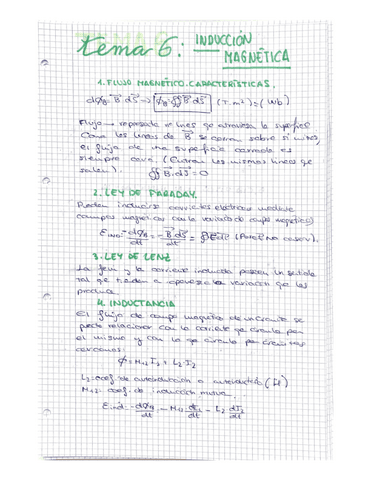 tema 6: INDUCCIÓN
MAGNÉTICA
1. FLUJO MAGNÉTICO. CARACTERÍSTICAS.
dØ_B = B⃗ dS⃗ → Ø_B = ∯ B⃗ dS⃗ (T·m²) = (Wb)
Flujo → representa nº lineas que atraviesa la superficie
Como las lineas de B⃗ se cierran sobre si mismas,
el flujo de una superficie cerrada es
siempre cero. (Entran las mismas lineas que
salen). ∯ B⃗·dS⃗ = 0
2. LEY DE FARADAY.
Pueden inducirse corrientes eléctricas mediante
campos magnéticos con la variación de campo magnético
E_ind = -dØ_B/dt = -B⃗ dS⃗/dt = ∮ E⃗ dl⃗ (No conserv).
3. LEY DE LENZ
La fem y la corriente inducida poseen un sentido
tal que tienden a oponerse a la variación que las
produce.
4. INDUCTANCIA
El flujo de campo magnético de un circuito se
puede relacionar con la corriente que circula por
el mismo y con la que circula por circuitos
cercanos:
Ø = M₁₂ I₁ + L₂ I₂
L₂: coef. de autoinducción o autoinducción (H)
M₁₂: coef. de inducción mutua.
E_ind = -dØ_B/dt = -M₁₂ dI₁/dt - L₂ dI₂/dt